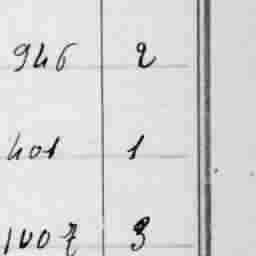 946 2
401 1
1007 3